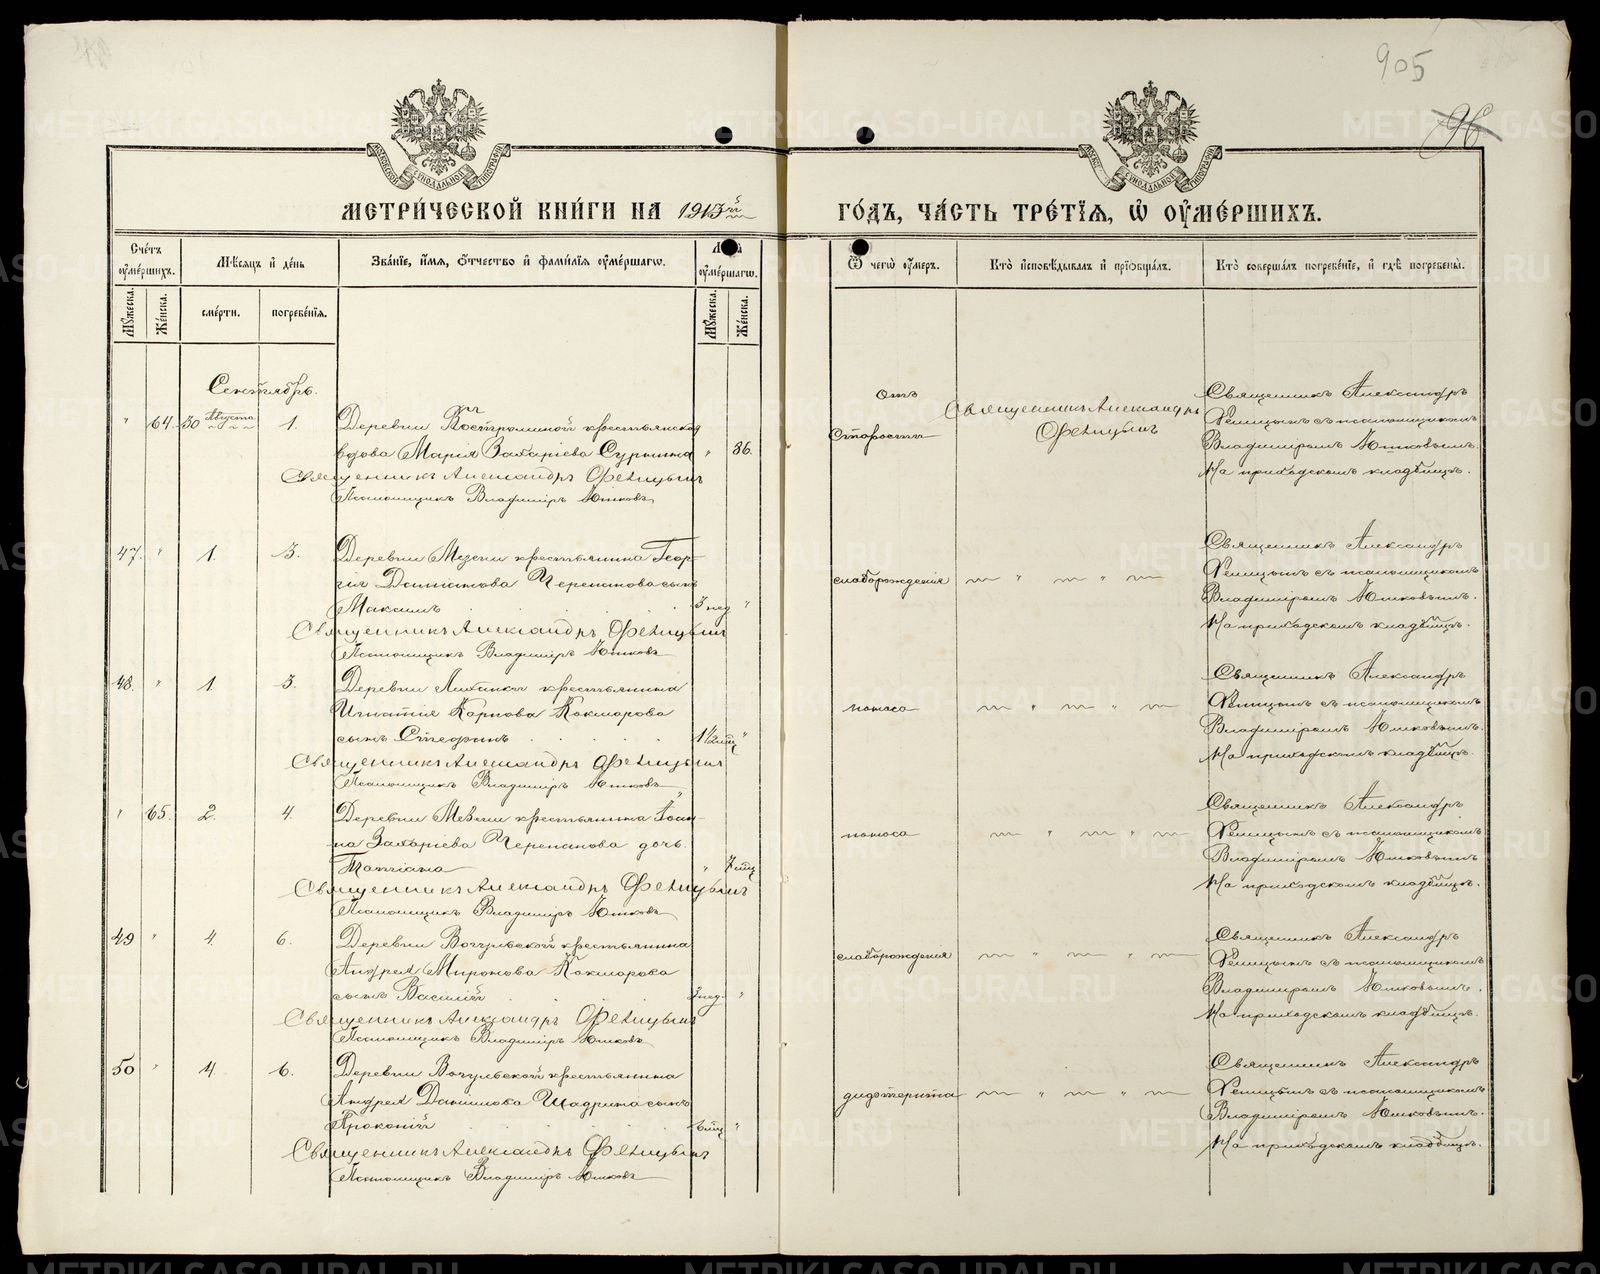 905
96
МЕТРИ́ЧЕСКОЙ КНИ́ГИ НА 1913й ГО́ДЪ, ЧА́СТЬ ТРЕ́ТІѦ, Ѽ ОУМЕ́РШИХЪ.
Сче́тъ оуме́ршихъ.
Мѣ́сяцъ и де́нь
Зва́ніе, и́мя, о́тчество и фами́лія оуме́ршагѡ.
Лѣта оуме́ршагѡ.
Ѿ чегѡ̀ оу́меръ.
Кто̀ и́сповѣдывалъ и прїѡбща́лъ.
Кто̀ соверша́лъ погребе́ніе, и гдѣ̀ погребены̀.
Мꙋ́жеска.
Же́нска.
сме́рти.
погребе́нія.
Мꙋ́жеска.
Же́нска.
Сентябрь.
" 64. 30 Августа 1. Деревни Костроминой крестьянская
вдова Марія Захаріева Сурнина " 86.
Священникъ Александръ Фелицынъ
Псаломщикъ Владиміръ Южковъ
отъ
старости
Священникъ Александръ
Фелицынъ
Священникъ Александръ
Фелицынъ съ псаломщикомъ
Владиміромъ Южковымъ.
На приходскомъ кладбищѣ.
47. " 1. 3. Деревни Мезени крестьянина Геор-
гія Даміанова Черепанова сынъ
Максимъ 3 нед "
Священникъ Александръ Фелицынъ
Псаломщикъ Владиміръ Южковъ
слаборожденія
Священникъ Александръ
Фелицынъ съ псаломщикомъ
Владиміромъ Южковымъ.
На приходскомъ кладбищѣ.
48. " 1. 3. Деревни крестьянина
Игнатія Карпова Кокшарова
сынъ Стефанъ 1 1/2 мцъ "
Священникъ Александръ Фелицынъ
Псаломщикъ Владиміръ Южковъ
поноса
Священникъ Александръ
Фелицынъ съ псаломщикомъ
Владиміромъ Южковымъ.
На приходскомъ кладбищѣ.
" 65. 2. 4. Деревни Мезени крестьянина Іоан-
на Захаріева Черепанова дочь
Татіана " 7 мцъ
Священникъ Александръ Фелицынъ
Псаломщикъ Владиміръ Южковъ
поноса
Священникъ Александръ
Фелицынъ съ псаломщикомъ
Владиміромъ Южковымъ
На приходскомъ кладбищѣ.
49 " 4. 6. Деревни Вогульской крестьянина
Андрея Миронова Кокшарова
сынъ Василій 3 нед. "
Священникъ Александръ Фелицынъ
Псаломщикъ Владиміръ Южковъ
слаборожденія
Священникъ Александръ
Фелицынъ съ псаломщикомъ
Владиміромъ Южковымъ.
На приходскомъ кладбищѣ.
50 " 4 6. Деревни Вогульской крестьянина
Андрея Даніилова Шадрина сынъ
Прокопій 6 мцъ "
Священникъ Александръ Фелицынъ
Псаломщикъ Владиміръ Южковъ
дифтерита
Священникъ Александръ
Фелицынъ съ псаломщикомъ
Владиміромъ Южковымъ.
На приходскомъ кладбищѣ.
METRIKI.GASO-URAL.RU